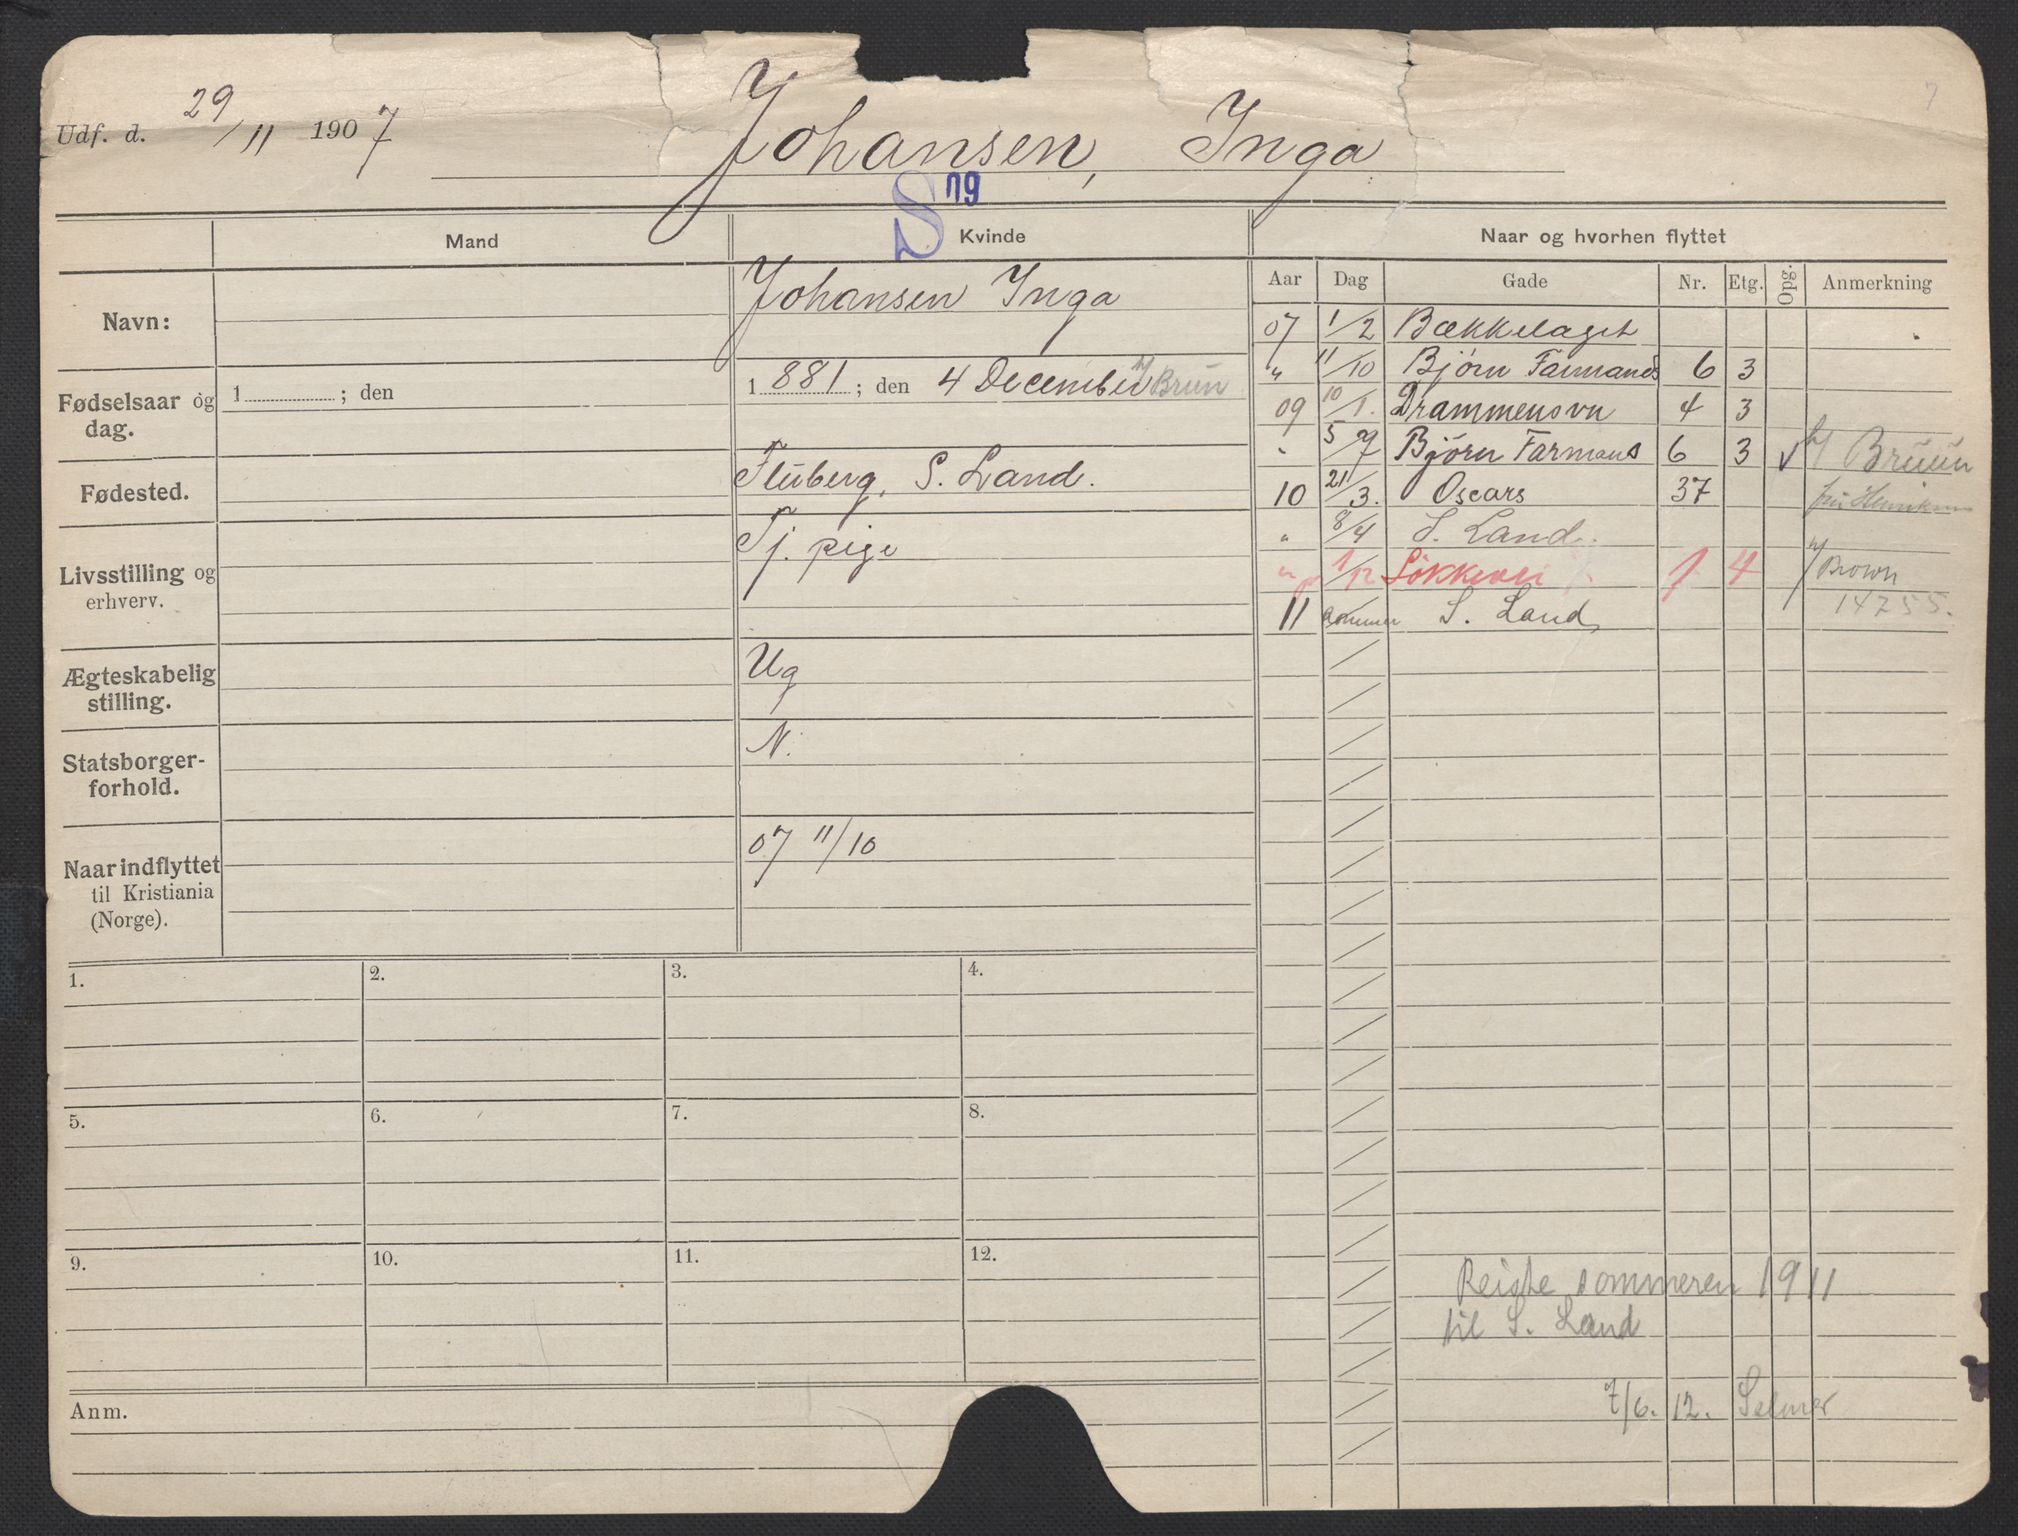 7
Udf. d. 29/11 1907 Johansen, Inga
S 19
Mand Kvinde Naar og hvorhen flyttet
Aar Dag Gade Nr. Etg. Opg. Anmerkning
Navn: Johansen Inga
Fødselsaar og dag. 1 ; den 1881 ; den 4 December h/ Brun
Fødested. Fluberg, S. Land.
Livsstilling og erhverv. Tj. pige
Ægteskabelig stilling. Ug
Statsborgerforhold. N.
Naar indflyttet til Kristiania (Norge). 07 11/10
07 1/2 Bækkelaget
" 11/10 Bjørn Farmands 6 3
09 10/1. Drammensvn 4 3
" 5/7 Bjørn Farmans 6 3 ✓ h/ Bruun
10 21/3. Oscars 37
" 8/4 S. Land.
" 1/12 Løkkevei 1 4 h/ Brown
11 sommer S. Land 14755.
1. 2. 3. 4.
5. 6. 7. 8.
9. 10. 11. 12.
Reiste sommeren 1911
til S. Land
7/6. 12. Selmer
Anm.